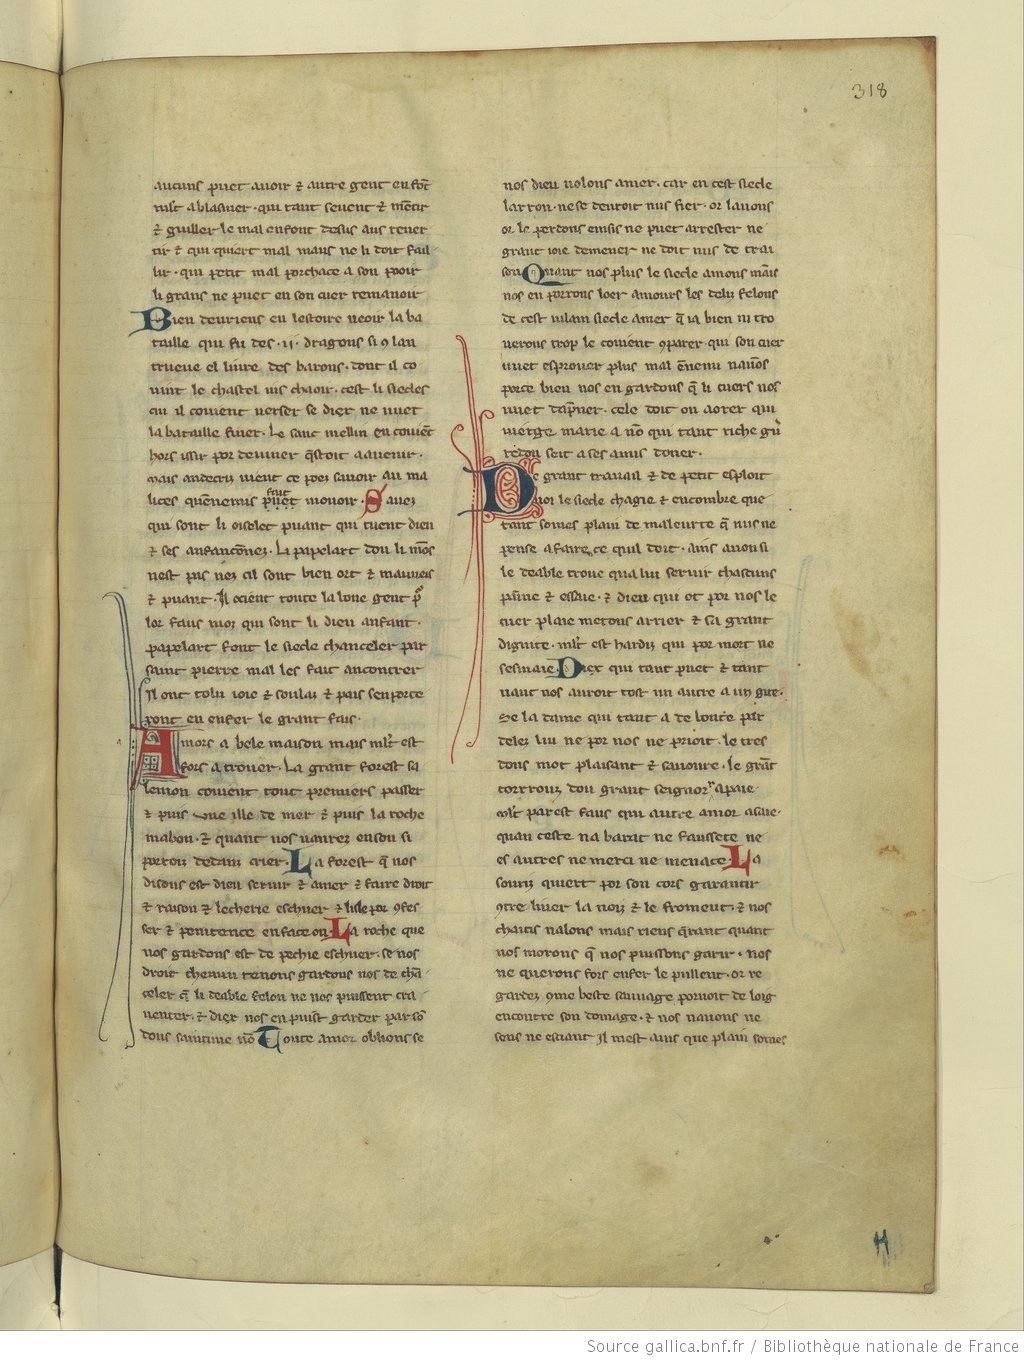 318
aucuns puet avoir ⁊ autre gent en fōt
mlt a blasmer · qui tant sevent ⁊ mētir
⁊ guiller le mal en font desus aus rever
tir ⁊ qui quiert mal maus ne li doit fail
lir · qui petit mal porchace a son pooir
li grans ne puet en son cuer remanoir
Bien devriens en lestoire veoir la ba
taille qui fu des · ii · dragons si 9 lan
trueve el livre des barons · dont il co
vint le chastel jus chaoir · cest li siecles
cui il covient verser se diex ne vuet
la bataille finer · Le sanc mellin en covient
hors issir por deviner qestoit a avenir ·
mais andecriz vient ce poez savoir au ma
lices quenemis puet movoir · Savez
fait
qui sont li oiselet puant qui tuent dieu
⁊ ses anfanconez · Li papelart don li mōs
nest pas nez cil sont bien ort ⁊ mauveis
⁊ puant · Il ocient toute la bone gent p
lor faus moz qui sont li dieu anfant ·
papelart font le siecle chanceler par
saint pierre mal les fait anconcrer
Il ont tolu joie ⁊ soulaz ⁊ pais sen porte
ront en enfer le grant fais ·
Amors a bele maison mais mlt est
fors a trover · La grant forest sa
lemon covient tout premiers passer
⁊ puis une ille de mer ⁊ puis la roche
mabon · ⁊ quant nos vanrez enson si
porroiz dedanz crier · La forest q̄ nos
disons est dieu servir ⁊ amer ⁊ faire droit
⁊ raison ⁊ lecherie eschuer ⁊ lisle por 9fes
ser ⁊ penitence en face on La roche que
nos gardons est de pechie eschuer · se nos
droit chemin tenons gardons nos de chā
celer q̄ li deable felon ne nos puissent cra
venter · ⁊ diex nos en puist garder par sō
dous saintime nō Toute amor oblions se
nos dieu volons amer · car en cest siecle
larron · ne se devroit nus fier · or lavons
or le perdons ensis ne puet arrester ne
grant joie demener ne doit nus de trai
son Quant nos plus le siecle amons mais
nos en porrons loer amours les delu felons
de cest vilain siecle amer q̄ ja bien ni tro
verons trop le covient 9parer · qui son cuer
vuet esprover plus mal ēnemi navōs
porce bien nos en gardons q̄ li cuers nos
vuet dāpner · cele doit on aorer qui
vierge marie a nō qui tant riche gu
redon seit a ses amis doner ·
De grant travail ⁊ de petit esploit
voi le siecle chagie ⁊ encombre que
tant somes plain de maleurte q̄ nus ne
pense a faire ce quil doit · ains avons si
le deable trove qua lui servir chascuns
paine ⁊ essaie · ⁊ dieu qui ot por nos le
cuer plaie metons arrier ⁊ sa grant
dignite · mlt est hardiz qui por mort ne
sesmaie · Diex qui tant puet ⁊ tant
vaut nos auroit tost un autre a un gue ·
Se la dame qui tant a de bonte par
delez lui ne por nos ne prioit · le tres
dous mot plaisant ⁊ savoure · le grāt
corrouz dou grant seignor apaie ·
mlt par est faus qui autre amor asaie ·
quan ceste na barat ne faussete ne
es autres ne merci ne menaie La
souriz quiert por son cors garantir
9tre liver la noiz ⁊ le froment · ⁊ nos
chaitis nalons mais riens qerant quant
nos morons q̄ nos puissons garir · nos
ne querons fors enfer le puillent · or re
gardez 9me beste sauvage porvoit de loig
encontre son domage · ⁊ nos navons ne
sens ne esciant il mest avis que plain somes
Source gallica.bnf.fr / Bibliothèque nationale de France